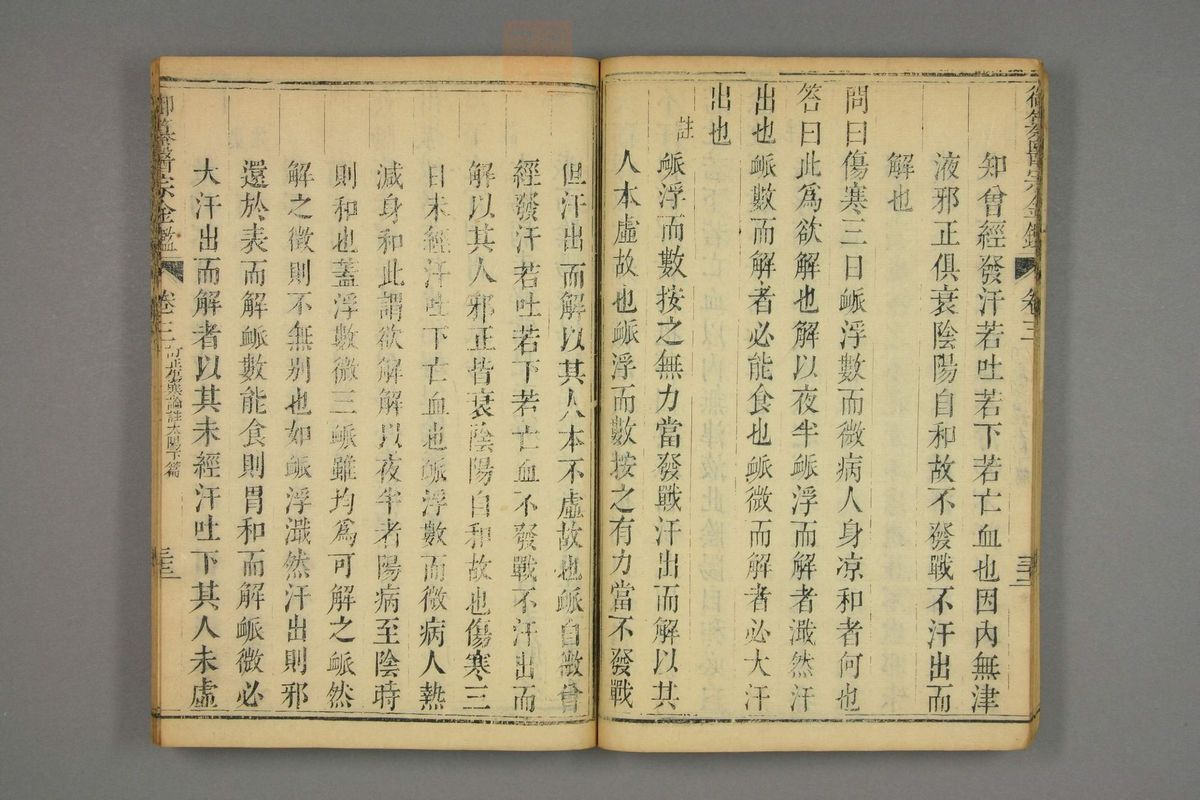 御纂醫宗金鑑 卷三
知曾經發汗若吐若下若亡血也因內無津
液邪正俱衰陰陽自和故不發戰不汗出而
解也
問曰傷寒三日脈浮數而微病人身凉和者何也
答曰此爲欲解也解以夜半脈浮而解者濈然汗
出也脈數而解者必能食也脈微而解者必大汗
出也
註 脈浮而數按之無力當發戰汗出而解以其
人本虛故也脈浮而數按之有力當不發戰
但汗出而解以其人本不虛故也脈自微曾
經發汗若吐若下若亡血不發戰不汗出而
解以其人邪正皆衰陰陽自和故也傷寒三
日未經汗吐下亡血也脈浮數而微病人熱
減身和此謂欲解解以夜半者陽病至陰時
則和也蓋浮數微三脈雖均爲可解之脈然
解之徵則不無别也如脈浮濈然汗出則邪
還於表而解脈數能食則胃和而解脈微必
大汗出而解者以其未經汗吐下其人未虛
御纂醫宗金鑑 卷三 訂正傷寒論註太陽下篇